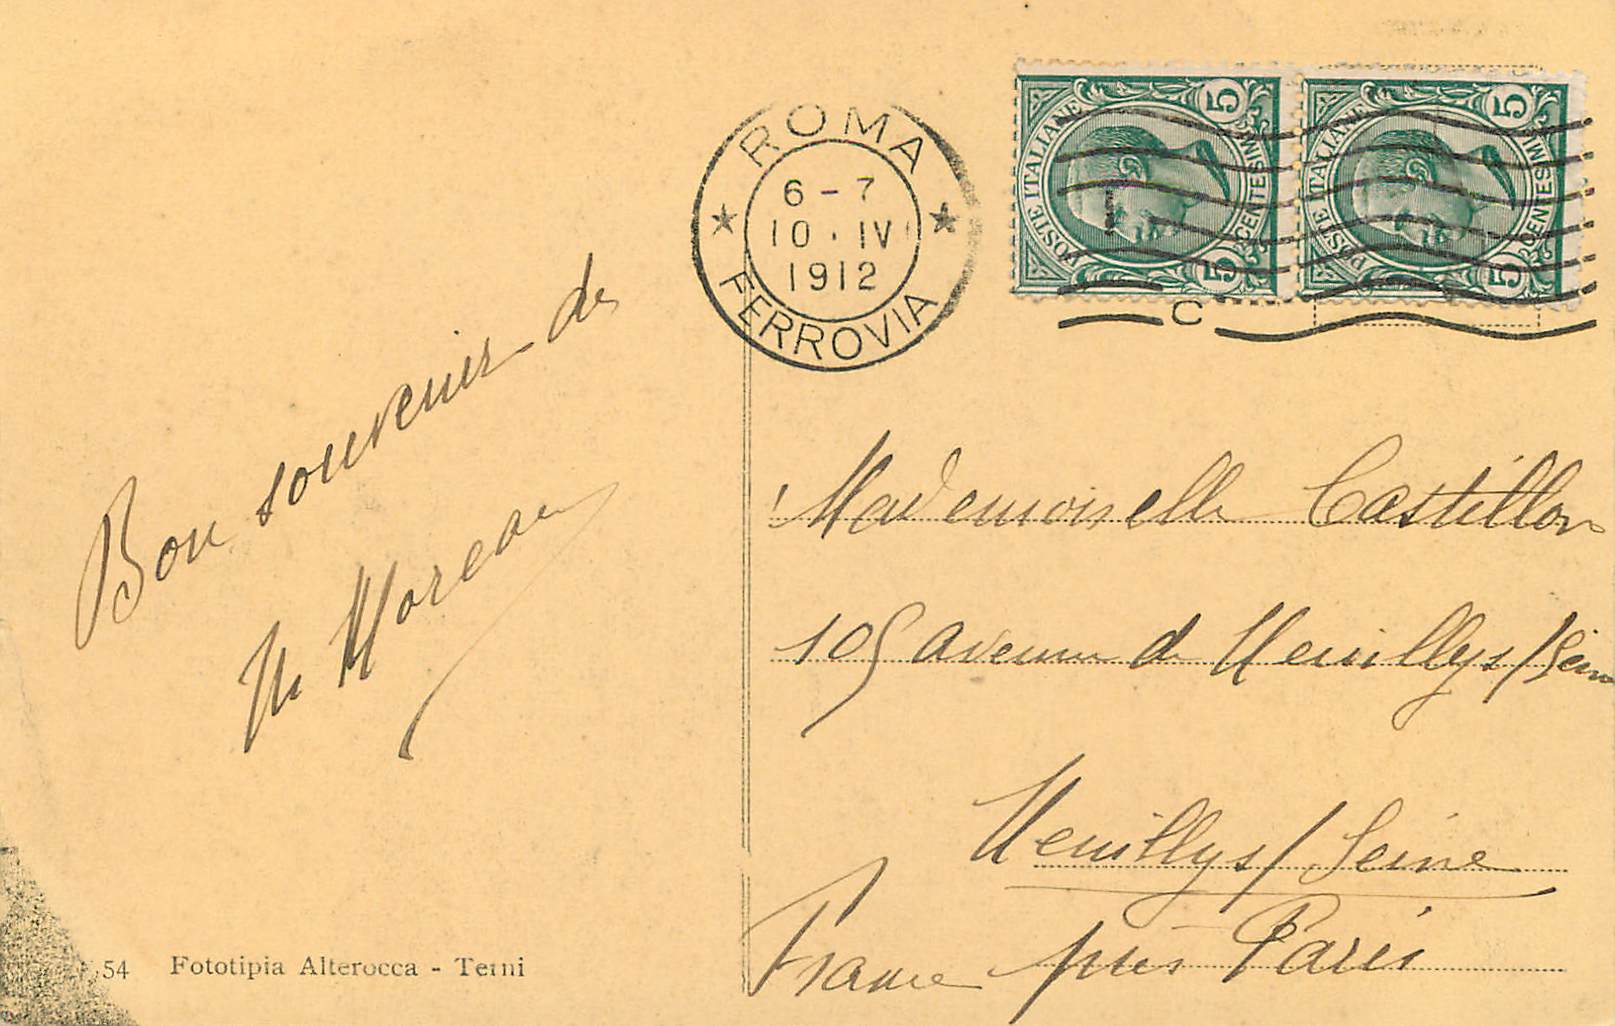 ROMA
6-7
10·IV
1912
FERROVIA
POSTE ITALIANE
5 CENTESIMI 5
POSTE ITALIANE
5 CENTESIMI 5
C
Bon souvenir de
M Moreau
Mademoiselle Castillon
105 avenue de Neuillys/Seine
Neuillys/Seine
France près Paris
54 Fototipia Alterocca - Terni